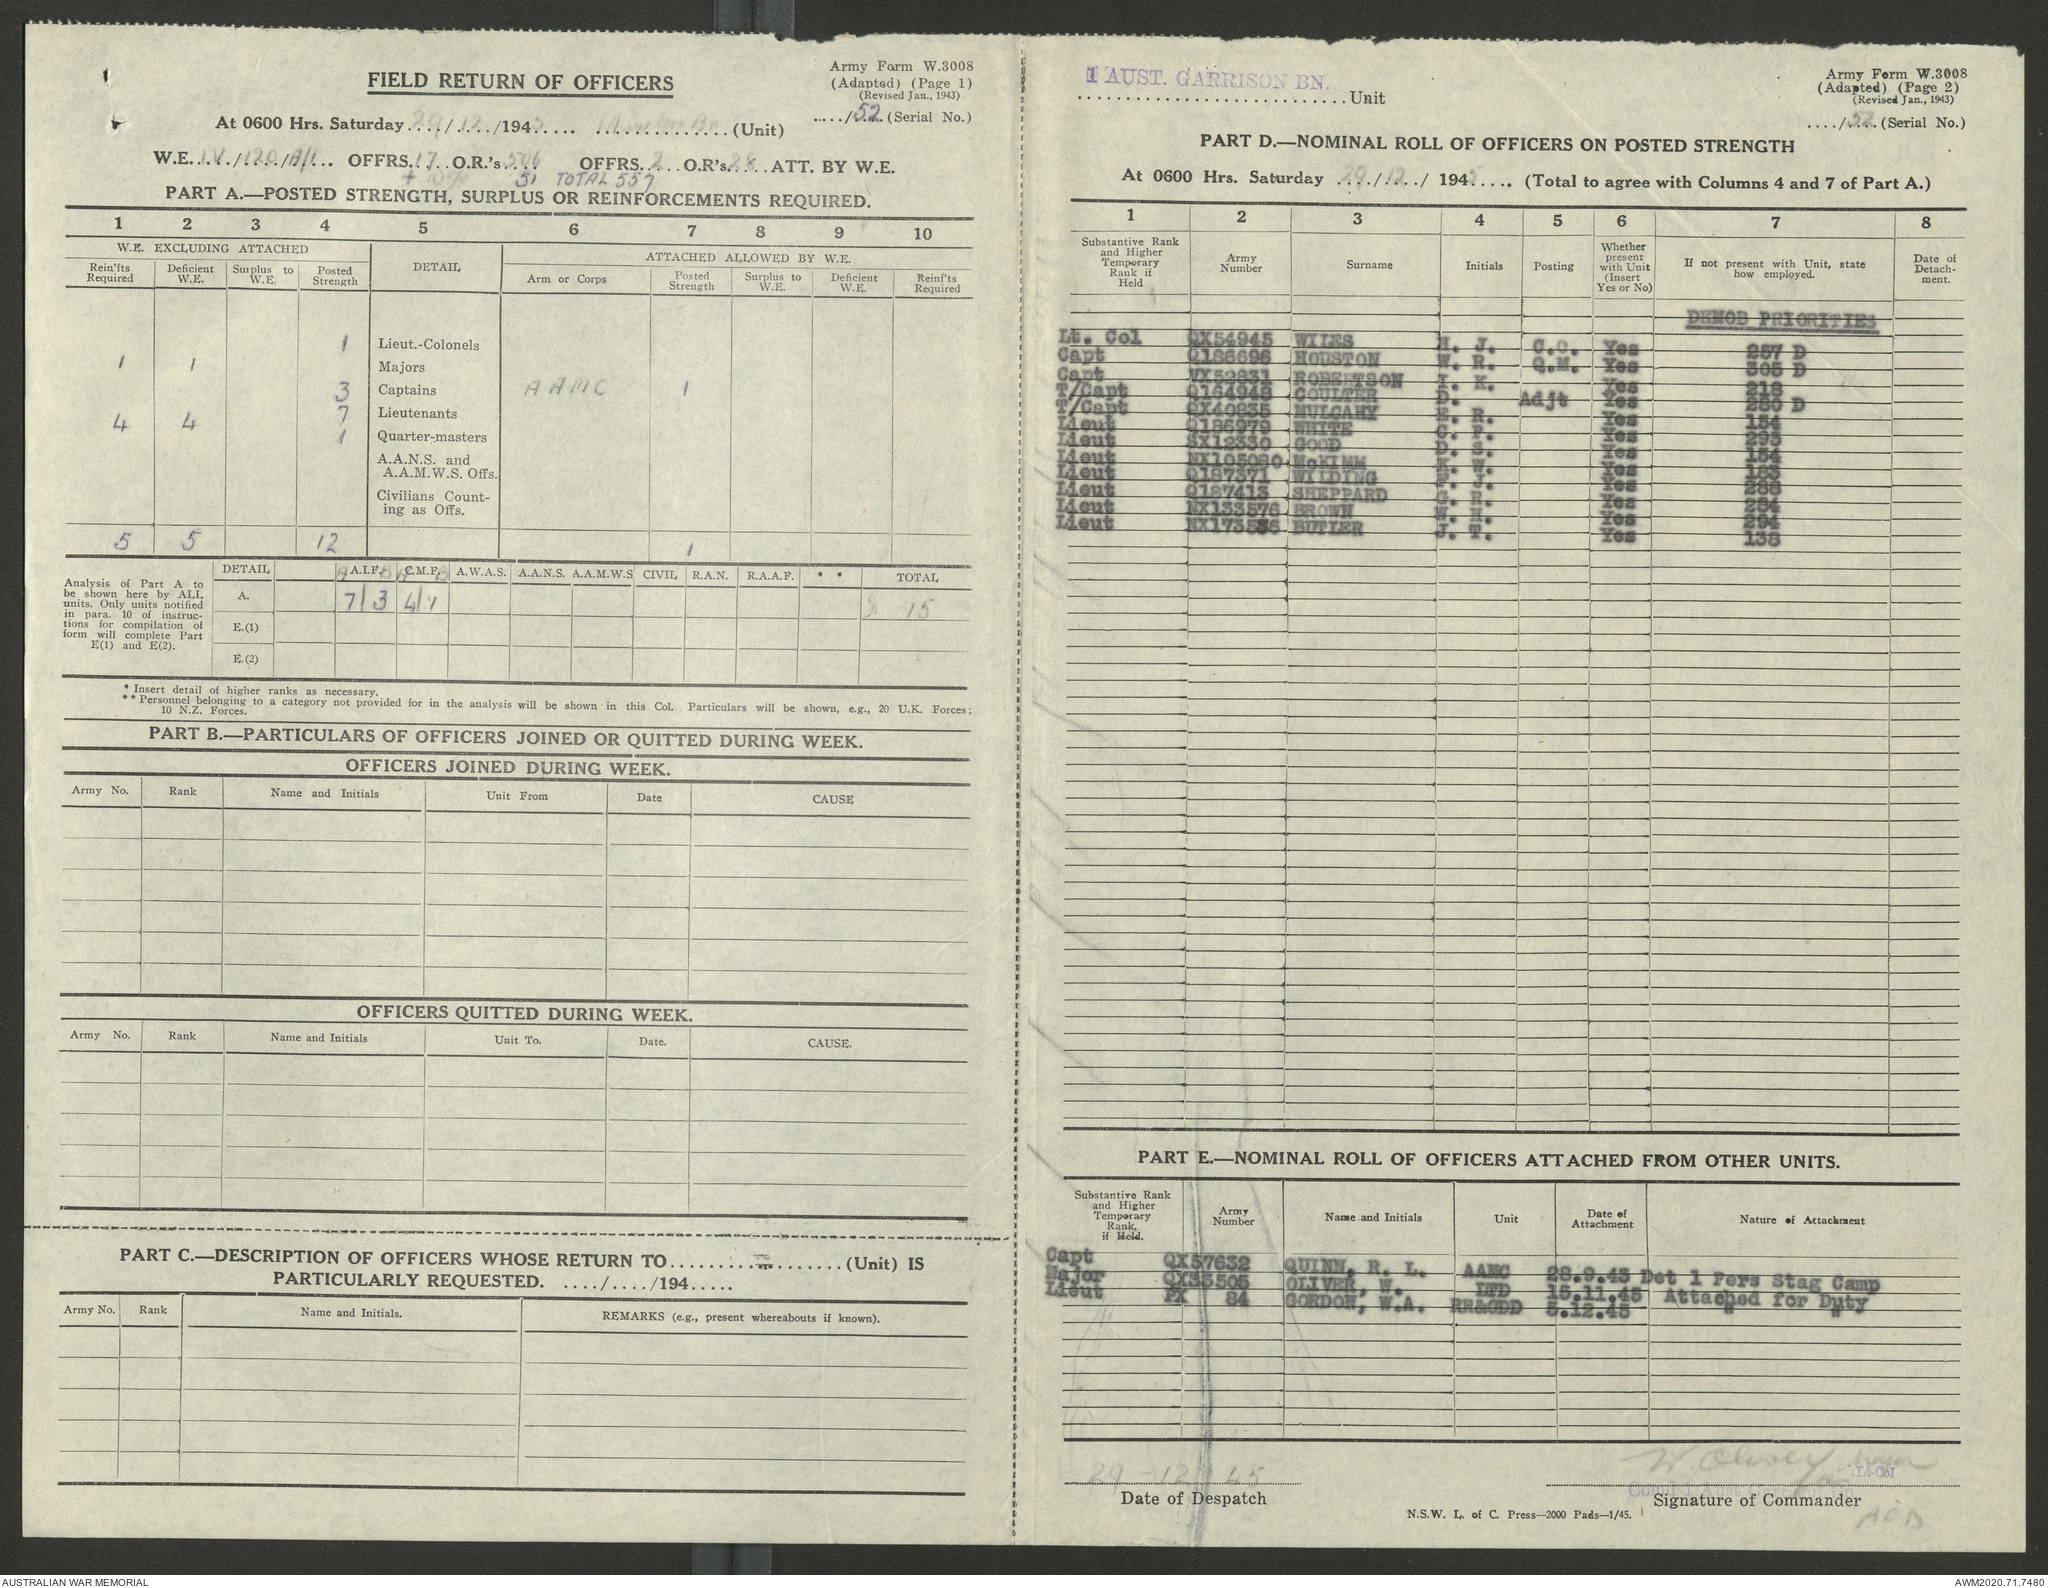 FIELD RETURN OF OFFICERS
Army Form W.3008
(Adapted) (Page 1)
(Revised Jan., 1943)
...../52.. (Serial No.)
At 0600 Hrs. Saturday 29/12/1945 .... (Unit)
W.E. IV/120/A/1... OFFRS. 17 O.R.'s 506 OFFRS. 2 O.R's 28 ATT. BY W.E.
+ 10% 51 TOTAL 557
PART A.—POSTED STRENGTH, SURPLUS OR REINFORCEMENTS REQUIRED.
1 2 3 4 5 6 7 8 9 10
W.E. EXCLUDING ATTACHED DETAIL ATTACHED ALLOWED BY W.E.
Rein'fts Required Deficient W.E. Surplus to W.E. Posted Strength Arm or Corps Posted Strength Surplus to W.E. Deficient W.E. Reinf'ts Required
1 Lieut.-Colonels
1 1 Majors
3 Captains AAMC 1
4 4 7 Lieutenants
1 Quarter-masters
A.A.N.S. and
A.A.M.W.S. Offs.
Civilians Count-
ing as Offs.
5 5 12 1
Analysis of Part A to
be shown here by ALL
units. Only units notified
in para. 10 of instruc-
tions for compilation of
form will complete Part
E(1) and E(2).
DETAIL A.I.F. C.M.F. A.W.A.S. A.A.N.S. A.A.M.W.S CIVIL R.A.N. R.A.A.F. * * TOTAL
A. 7/3 4/1 15
E.(1)
E.(2)
* Insert detail of higher ranks as necessary.
** Personnel belonging to a category not provided for in the analysis will be shown in this Col. Particulars will be shown, e.g., 20 U.K. Forces;
10 N.Z. Forces.
PART B.—PARTICULARS OF OFFICERS JOINED OR QUITTED DURING WEEK.
OFFICERS JOINED DURING WEEK.
Army No. Rank Name and Initials Unit From Date CAUSE
OFFICERS QUITTED DURING WEEK.
Army No. Rank Name and Initials Unit To. Date. CAUSE.
PART C.—DESCRIPTION OF OFFICERS WHOSE RETURN TO.................(Unit) IS
PARTICULARLY REQUESTED. ..../..../194.....
Army No. Rank Name and Initials. REMARKS (e.g., present whereabouts if known).
1 AUST. GARRISON BN.
............................Unit
Army Form W.3008
(Adapted) (Page 2)
(Revised Jan., 1943)
..../52.. (Serial No.)
PART D.—NOMINAL ROLL OF OFFICERS ON POSTED STRENGTH
At 0600 Hrs. Saturday 29/12/ 1945.... (Total to agree with Columns 4 and 7 of Part A.)
1 2 3 4 5 6 7 8
Substantive Rank and Higher Temporary Rank if Held Army Number Surname Initials Posting Whether present with Unit (Insert Yes or No) If not present with Unit, state how employed. Date of Detach-ment.
DEMOB PRIORITIES
Lt. Col QX54945 WILES H. J. C.O. Yes 257 D
Capt Q186696 HOUSTON W. R. Q.M. Yes 305 D
Capt VX52831 ROBERTSON I. K. Yes 218
T/Capt Q164948 COULTER D. Adjt Yes 280 D
T/Capt QX40835 MULCAHY E. R. Yes 154
Lieut Q186979 WHITE C. P. Yes 295
Lieut SX12330 GOOD D. S. Yes 154
Lieut NX105080 McKIMM Yes 183
Lieut Q187371 WILDING Yes 288
Lieut Q187413 SHEPPARD G. R. Yes 284
Lieut NX133576 BROWN Yes 294
Lieut NX173556 BUTLER J. T. Yes 138
PART E.—NOMINAL ROLL OF OFFICERS ATTACHED FROM OTHER UNITS.
Substantive Rank and Higher Temporary Rank, if Held. Army Number Name and Initials Unit Date of Attachment Nature of Attachment
Capt QX57632 QUINN, R. L. AAMC 28.9.43 Det 1 Pers Stag Camp
Major QX33505 OLIVER, W. LTD 15.11.45 Attached for Duty
Lieut PX 84 GORDON, W.A. RR&GDD 5.12.45 " "
29-12-45
Date of Despatch
Lt-Col
Signature of Commander
N.S.W. L. of C. Press—2000 Pads—1/45.
AUSTRALIAN WAR MEMORIAL
AWM2020.71.7480